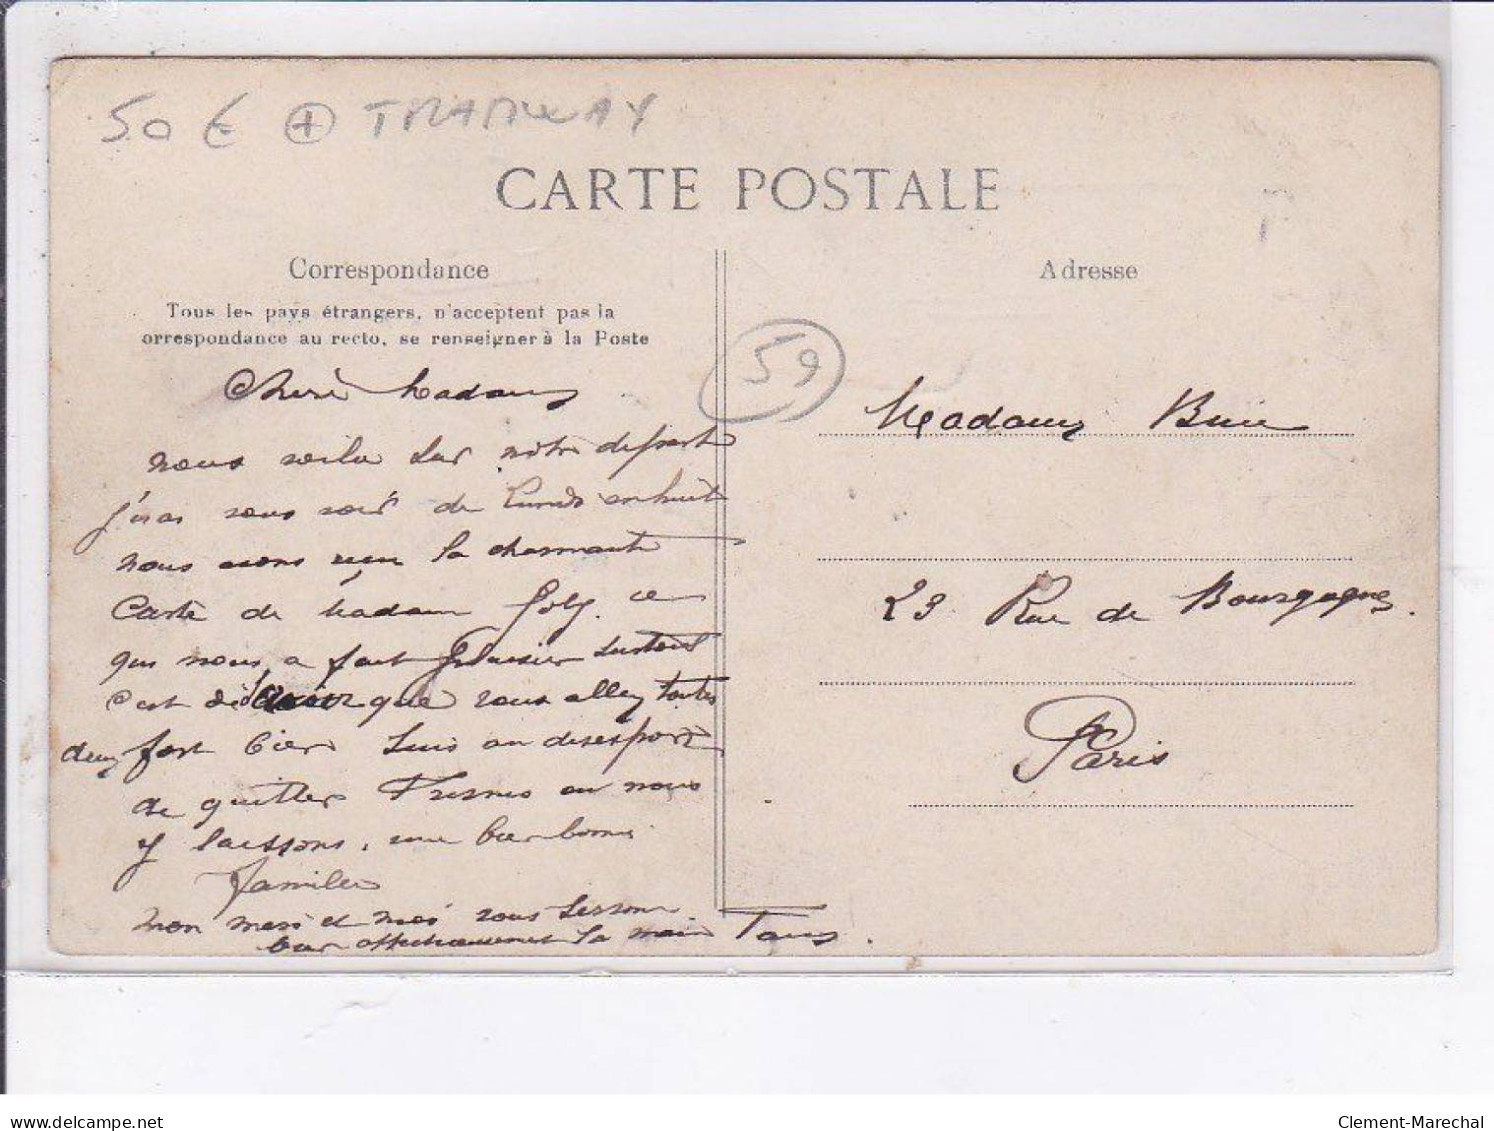 50 € + TRAMWAY
CARTE POSTALE
Correspondance
Tous les pays étrangers, n'acceptent pas la
orrespondance au recto, se renseigner à la Poste
Adresse
59
Chere Madame
nous voila sur notre depart
j'irai vous voir de Lundi en huit
nous avons reçu la charmante
Carte de Madame Joly. ce
qui nous a fait plaisir surtout
c'est de savoir que vous allez toutes
deux fort bien Suis au desespoir
de quitter Fresnes ou nous
y laissons, une bien bonne
famille
mon mari et moi vous serrons
bien affectueusement la main
Madame
23 Rue de Bourgogne.
Paris
delcampe.net
Clement-Marechal